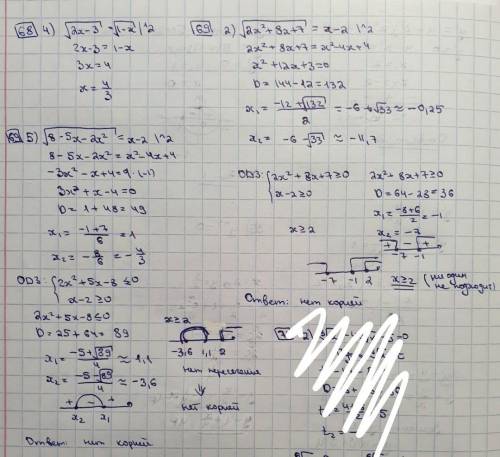 68 4) √(2x-3) = √(1-x) |^2
2x-3 = 1-x
3x = 4
x = 4/3
69 2) √(2x²+8x+7) = x-2 |^2
2x²+8x+7 = x²-4x+4
x²+12x+3=0
D = 144-12 = 132
x₁ = (-12+√132)/2 = -6+√33 ≈ -0,25
x₂ = -6-√33 ≈ -11,7
ОДЗ: { 2x²+8x+7 ≥ 0
x-2 ≥ 0
x ≥ 2
2x²+8x+7 ≥ 0
D = 64-28 = 36
x₁ = (-8+6)/2 = -1
x₂ = -7
+ - +
-7 -1
-7 -1 2
x ≥ 2 (ни один не подходит)
Ответ: нет корней
69 5) √(8-5x-2x²) = x-2 |^2
8-5x-2x² = x²-4x+4
-3x²-x+4=0 |·(-1)
3x²+x-4=0
D = 1+48 = 49
x₁ = (-1+7)/6 = 1
x₂ = -8/6 = -4/3
ОДЗ: { 2x²+5x-8 ≤ 0
x-2 ≥ 0
2x²+5x-8 ≤ 0
D = 25+64 = 89
x₁ = (-5+√89)/4 ≈ 1,1
x₂ = (-5-√89)/4 ≈ -3,6
+ - +
x₂ x₁
x ≥ 2
-3,6 1,1 2
нет пересечения
⇓
нет корней
Ответ: нет корней